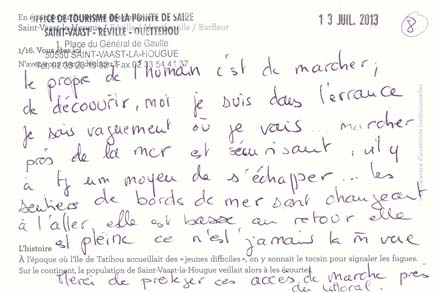 13 JUIL. 2013
8
OFFICE DE TOURISME DE LA POINTE DE SAIRE
SAINT-VAAST - RÉVILLE - QUETTEHOU
1, Place du Général de Gaulle
50550 SAINT-VAAST-LA-HOUGUE
1/16. Vous êtes ici
le propre de l'humain c'est de marcher ;
de découvrir, moi je suis dans l'errance
je sais vaguement où je vais... marcher
près de la mer est sécurisant, il y
à tj un moyen de s'échapper... les
sentiers de bords de mer sont changeant
à l'aller elle est basse au retour elle
est pleine ce n'est jamais la m̄ vue
L'histoire
À l'époque où l'île de Tatihou accueillait des «jeunes difficiles», on y sonnait le tocsin pour signaler les fugues.
Sur le continent, la population de Saint-Vaast-la-Hougue veillait alors à les écourter.
Merci de protéger ces accès de marche près
du littoral.